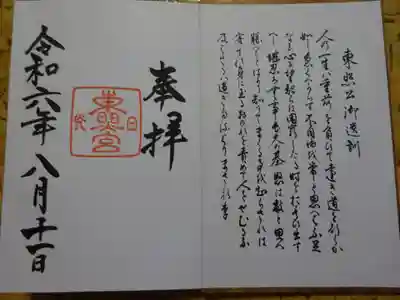 東照公御遺訓
人の一生は重荷を負ひて遠き道を行くか
如し急くへからす不自由を常と思へは不足
なし心に望起らは困窮したる時を思ひ出す
へし堪忍は無事長久の基怒は敵と思へ
勝つ事はかり知りてまくる事を知らされは
害其身に至るおのれを責めて人をせむるな
及はさるは過きたるよりまされり
奉拝
日光
東照宮
令和六年八月十一日